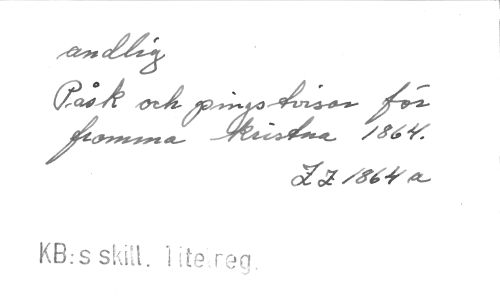 andlig
Påsk och pingstvisor för
fromma kristna 1864.
ZZ 1864 a
KB:s skill. litt.reg.